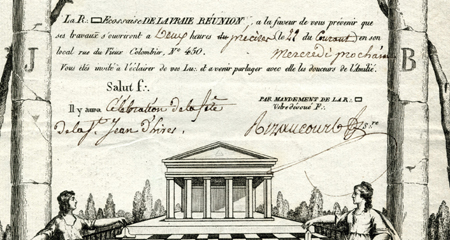 La R.·. ▭ Ecossaise DE LA VRAIE RÉUNION, a la faveur de vous prévenir que
ses travaux s'ouvriront a Deux heures du précises le 21 du Courant en son
local rue du Vieux Colombier, N.º 450. Mercredi prochain
Vous étes invité à l'éclairer de vos Lu.·. et a venir partager avec elle les douceurs de l'Amitié.
J B
Salut f.·.
Il y aura Célébration de la fête
de la St. Jean d'hiver.
PAR MANDEMENT DE LA R.·. ▭
Votre dévoué F.·.